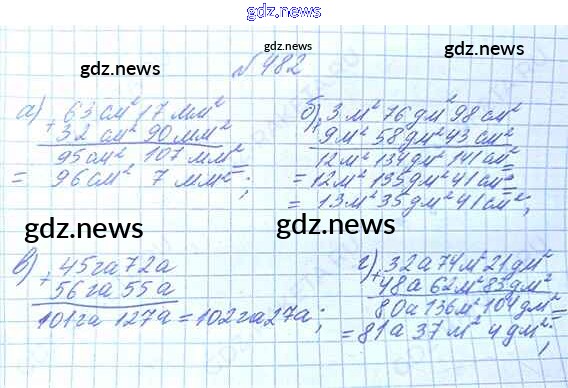 gdz.news
gdz.news
gdz.news
№482
а) 63 см² 17 мм²
+ 32 см² 90 мм²
95 см² 107 мм² =
= 96 см² 7 мм²;
б) 3 м² 76 дм² 98 см²
+ 9 м² 58 дм² 43 см²
12 м² 134 дм² 141 см² =
= 12 м² 135 дм² 41 см² =
= 13 м² 35 дм² 41 см²;
gdz.news
gdz.news
в) 45 га 72 а
+ 56 га 55 а
101 га 127 а = 102 га 27 а;
г) 32 а 74 м² 21 дм²
+ 48 а 62 м² 83 дм²
80 а 136 м² 104 дм² =
= 81 а 37 м² 4 дм²;
gdz.news